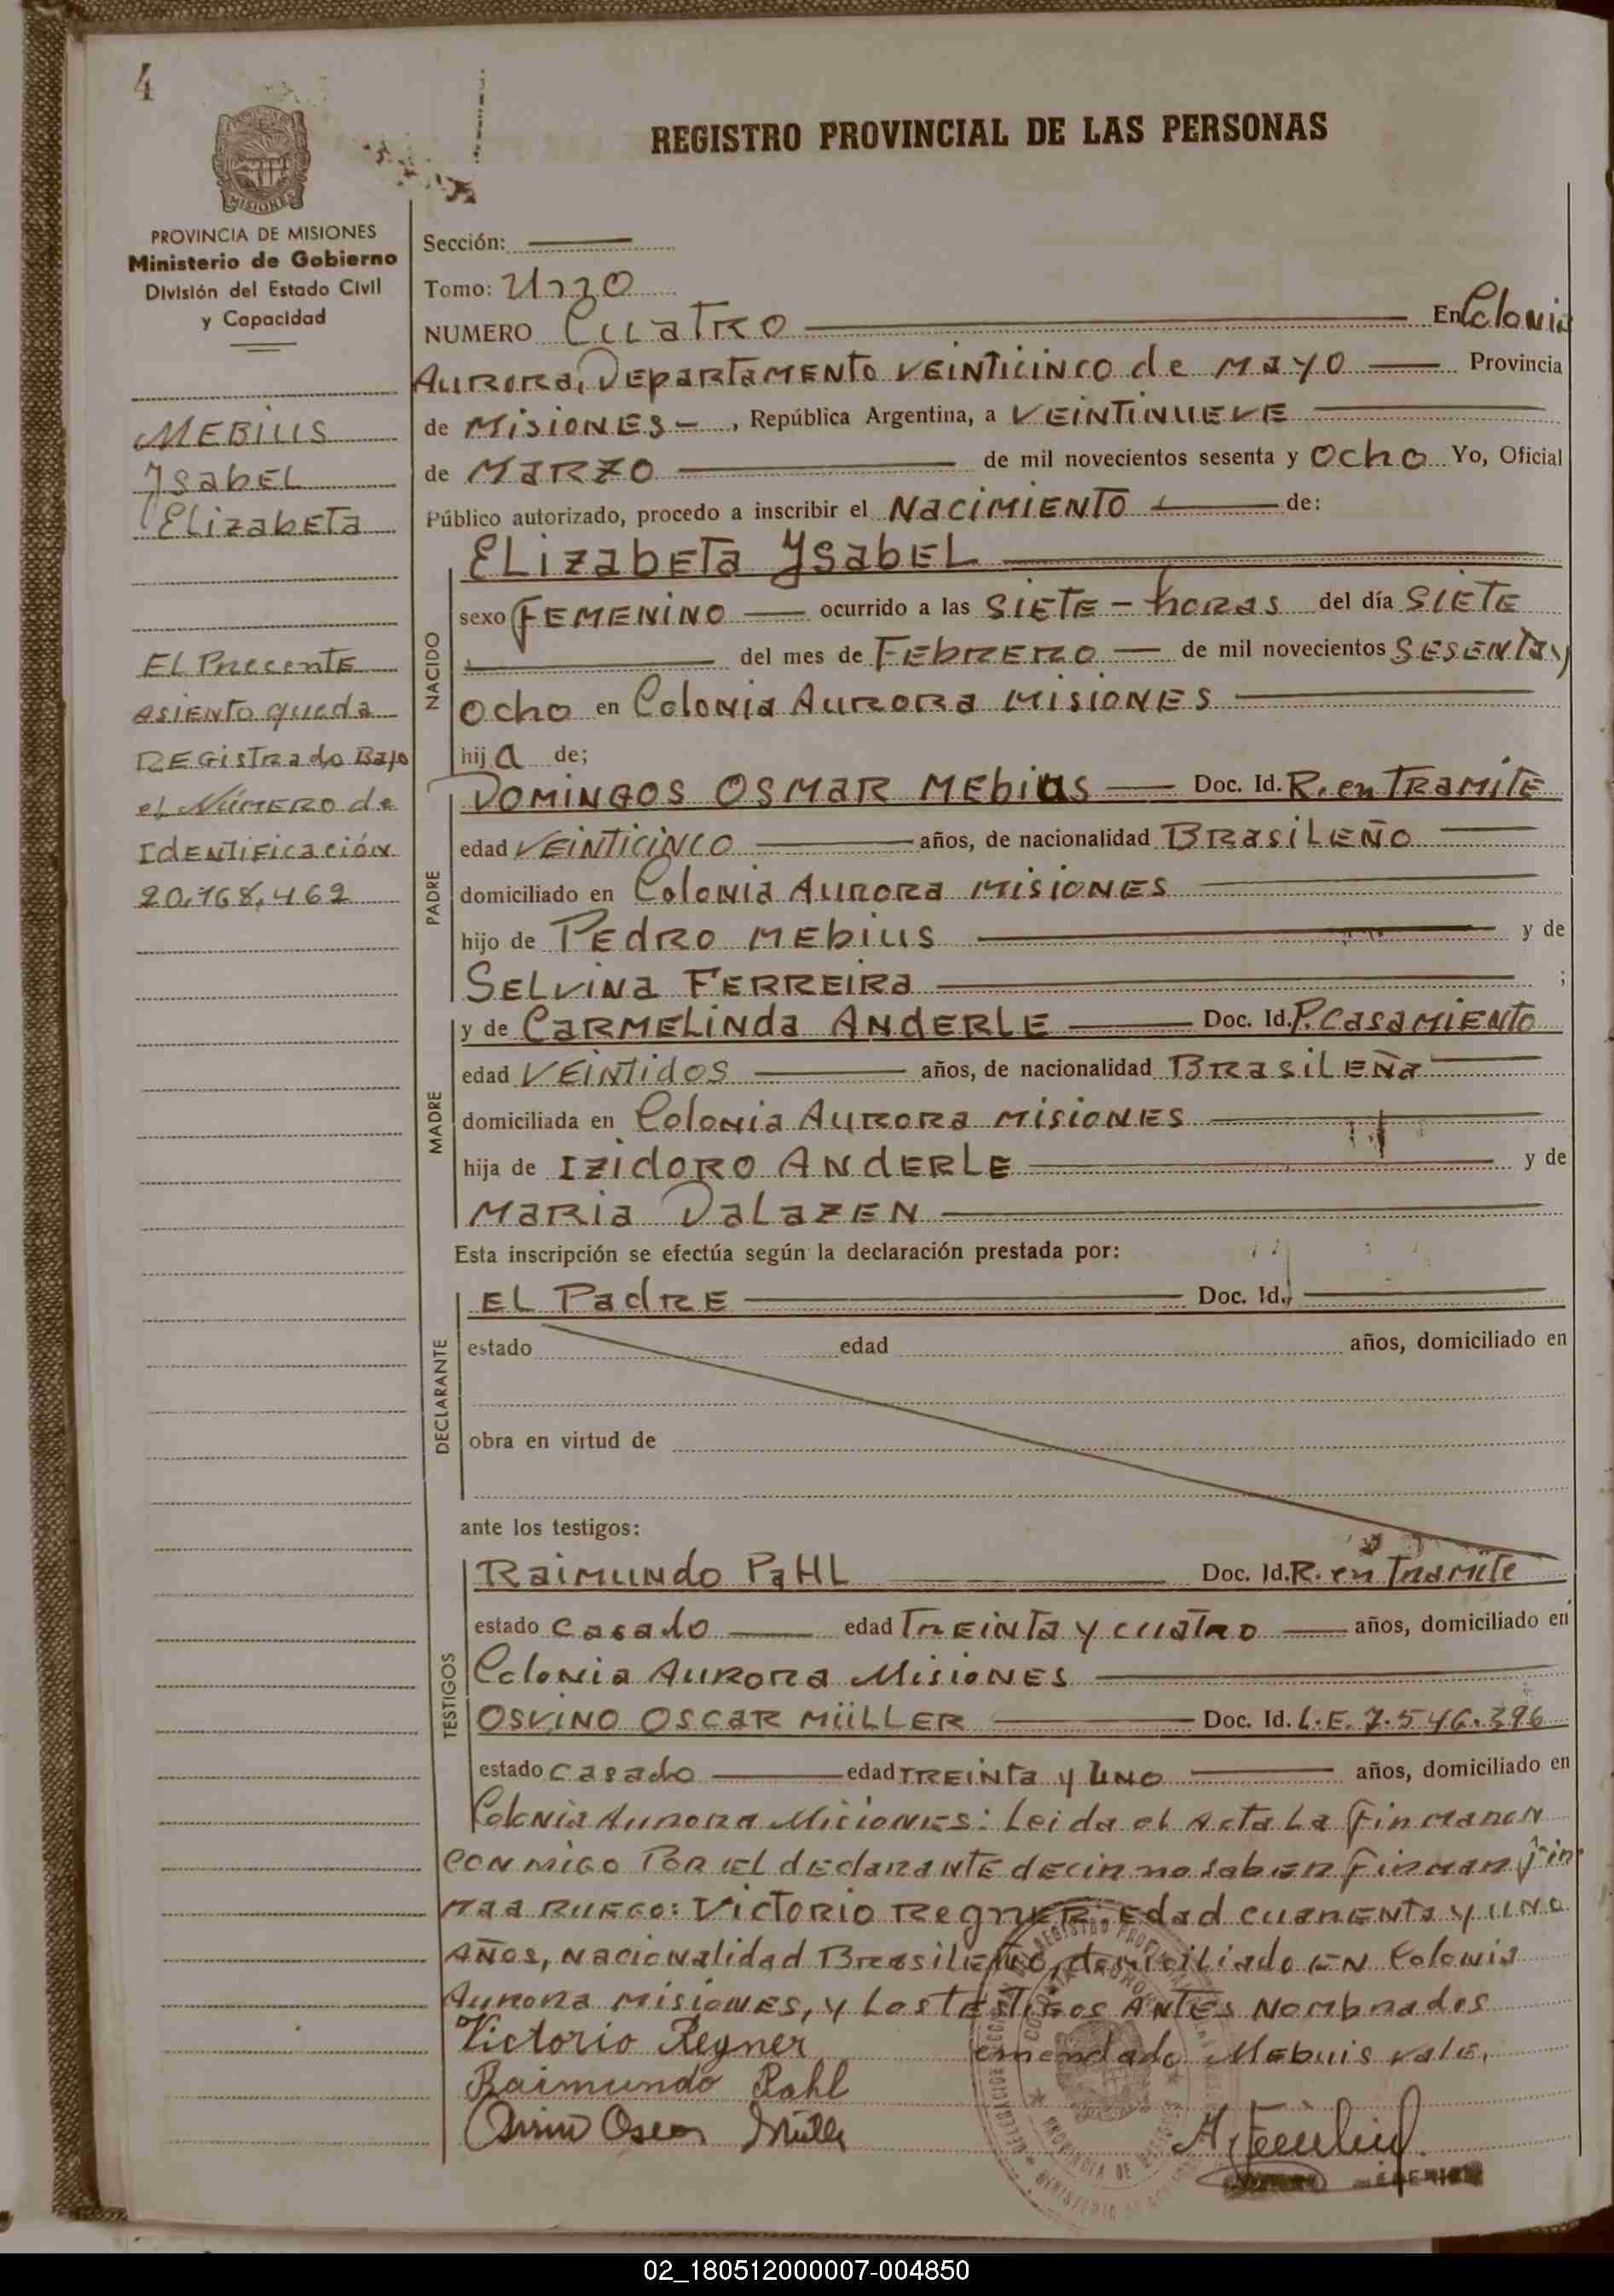 4
REGISTRO PROVINCIAL DE LAS PERSONAS
MISIONES
PROVINCIA DE MISIONES
Ministerio de Gobierno
División del Estado Civil
y Capacidad
MEBIUS
YsabEL
ELizabETa
EL Precente
asiento queda
REGistrado Bajo
el NÚMERO de
Identificación
20.768.462
Sección:
Tomo: Uno
NUMERO CuaTRO En Colonia
Aurora, Departamento veinticinco de mayo Provincia
de Misiones, República Argentina, a veintinueve
de Marzo de mil novecientos sesenta y ocho Yo, Oficial
Público autorizado, procedo a inscribir el Nacimiento de:
ELizabeta YsabEL
NACIDO
sexo Femenino ocurrido a las siete - horas del día siete
del mes de Febrero de mil novecientos sesenta y
ocho en Colonia Aurora Misiones
hija de;
PADRE
Domingos Osmar Mebius Doc. Id. R. en Tramite
edad veinticinco años, de nacionalidad Brasileño
domiciliado en Colonia Aurora Misiones
hijo de Pedro Mebius y de
Selvina Ferreira ;
MADRE
y de Carmelinda Anderle Doc. Id. P. Casamiento
edad veintidos años, de nacionalidad Brasileña
domiciliada en Colonia Aurora Misiones
hija de Izidoro Anderle y de
Maria Dalazen
Esta inscripción se efectúa según la declaración prestada por:
DECLARANTE
El Padre Doc. Id.
estado edad años, domiciliado en
obra en virtud de
ante los testigos:
TESTIGOS
Raimundo Pahl Doc. Id. R. en Tramite
estado casado edad Treinta y cuatro años, domiciliado en
Colonia Aurora Misiones
Osvino Oscar Müller Doc. Id. L.E. 7.546.396
estado casado edad treinta y uno años, domiciliado en
Colonia Aurora Miciones: Leida el Acta La Firmaron
conmigo Por el declarante decir no saber firman fir-
ma a ruego: Victorio Regner, edad cuarenta y uno
años, nacionalidad Brasileño, domiciliado en Colonia
Aurora Misiones, y los testigos antes nombrados
Victorio Regner emendado Mebuis vale.
Raimundo Pahl
Oscar Müller
02_180512000007-004850